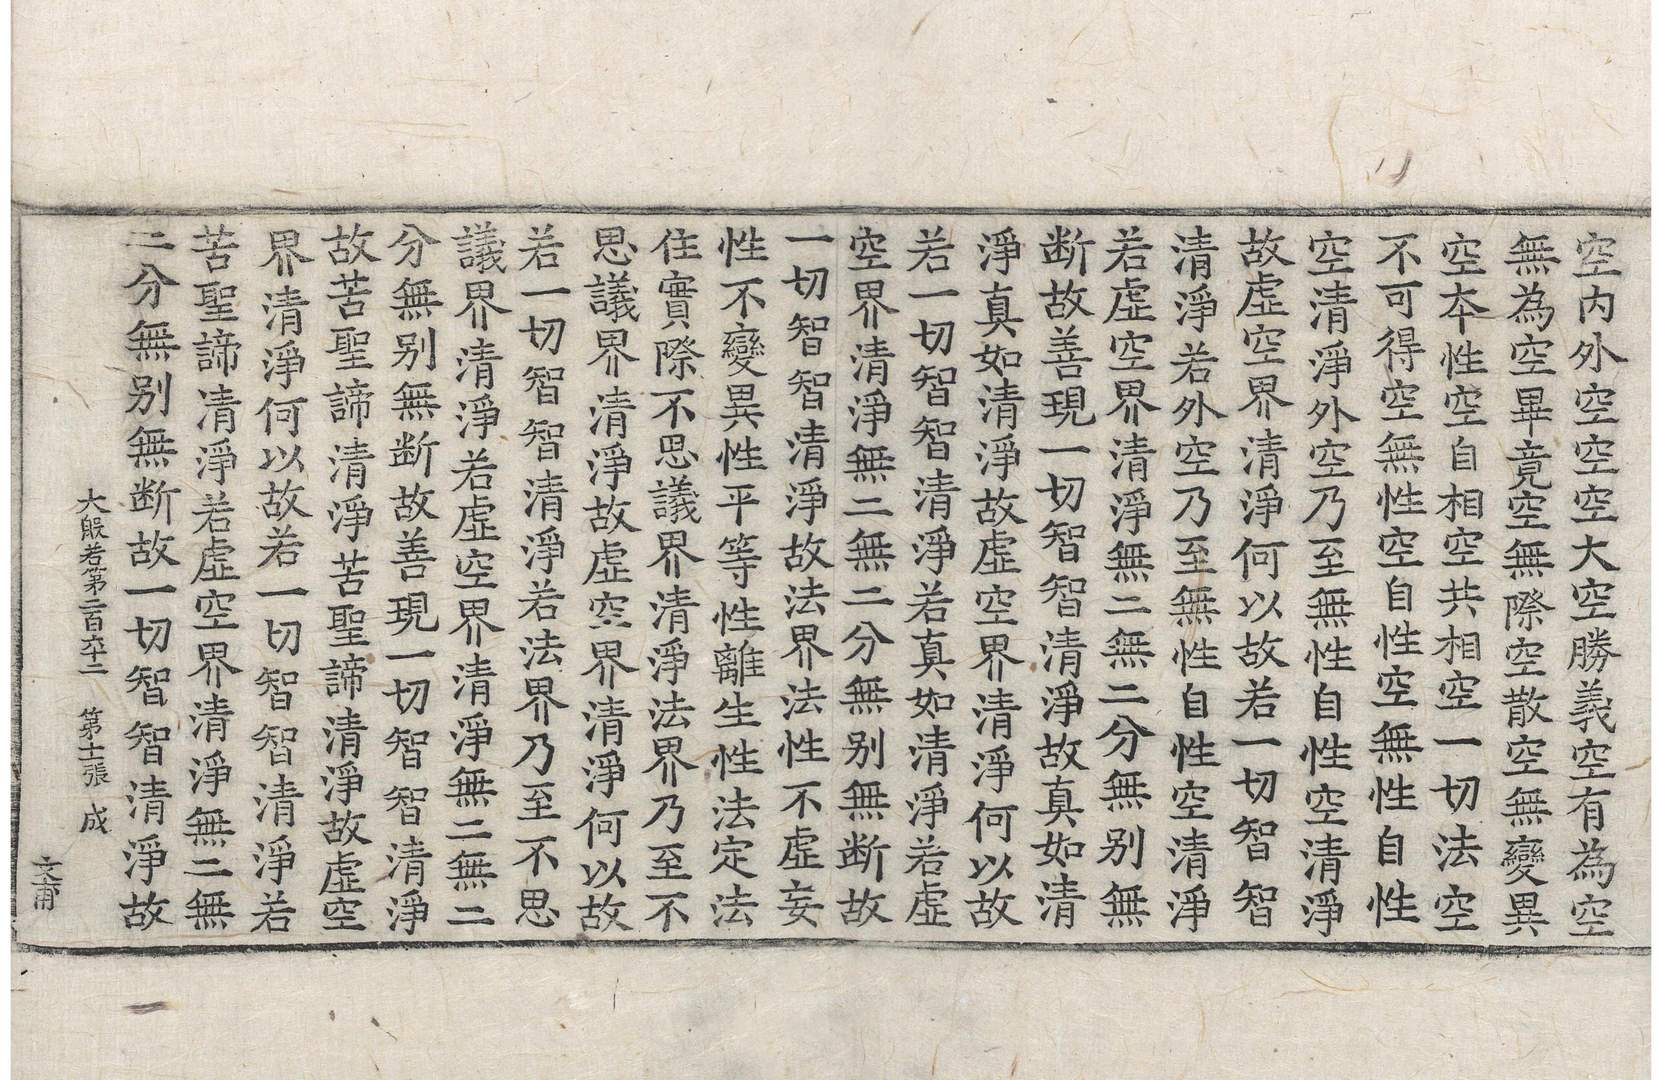 空内外空空空大空勝義空有為空
無為空畢竟空無際空散空無變異
空本性空自相空共相空一切法空
不可得空無性空自性空無性自性
空清淨外空乃至無性自性空清淨
故虛空界清淨何以故若一切智智
清淨若外空乃至無性自性空清淨
若虛空界清淨無二無二分無别無
断故善現一切智智清淨故真如清
淨真如清淨故虛空界清淨何以故
若一切智智清淨若真如清淨若虛
空界清淨無二無二分無别無断故
一切智智清淨故法界法性不虛妄
性不變異性平等性離生性法定法
住實際不思議界清淨法界乃至不
思議界清淨故虛空界清淨何以故
若一切智智清淨若法界乃至不思
議界清淨若虛空界清淨無二無二
分無别無断故善現一切智智清淨
故苦聖諦清淨苦聖諦清淨故虛空
界清淨何以故若一切智智清淨若
苦聖諦清淨若虛空界清淨無二無
二分無别無断故一切智智清淨故
大般若第二百六十二 第十二張 成
文甫